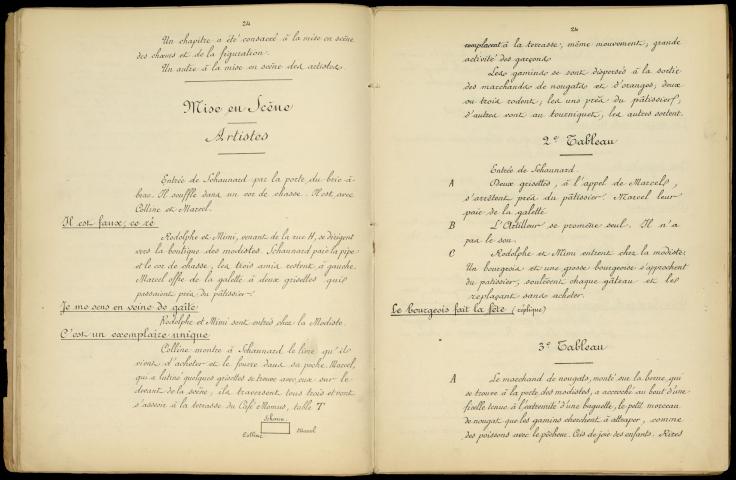 24
Un chapitre a été consacré à la mise en scène
des chœurs et de la figuration.
Un autre à la mise en scène des artistes.
Mise en Scène
Artistes
Entrée de Schaunard par la porte du bric-à-
brac. Il souffle dans un cor de chasse. Il est avec
Colline et Marcel.
Il est faux, ce ré
Rodolphe et Mimi, venant de la rue H, se dirigent
vers la boutique des modistes. Schaunard paie la pipe
et le cor de chasse, les trois amis restent à gauche.
Marcel offre de la galette à deux grisettes qui
passaient près du pâtissier.
Je me sens en veine de gaîté
Rodolphe et Mimi sont entrés chez la Modiste.
C'est un exemplaire unique
Colline montre à Schaunard le livre qu'il
vient d'acheter et le fourre dans sa poche. Marcel,
qui a lutiné quelques grisettes se trouve avec eux sur le
devant de la scène, ils traversent tous trois et vont
s'asseoir à la terrasse du Café Momus, table T
Schaun.
Colline Marcel
24
remplacent à la terrasse, même mouvement, grande
activité des garçons
Les gamins se sont dispersés à la sortie
des marchands de nougats et d'oranges, deux
ou trois rodent, les uns près du pâtissier,
d'autres vont au tourniquet, les autres sortent.
2e Tableau
Entrée de Schaunard
A Deux grisettes, à l'appel de Marcel,
s'arrêtent près du pâtissier. Marcel leur
paie de la galette
B L'Artilleur se promène seul. Il n'a
pas le sou.
C Rodolphe et Mimi entrent chez la modiste.
Un bourgeois et une grosse bourgeoise s'approchent
du patissier, soulèvent chaque gâteau et les
replaçant sans acheter.
Le bourgeois fait la fête (réplique)
3e Tableau
A Le marchand de nougats, monté sur la borne, qui
se trouve à la porte des modistes, a accroché au bout d'une
ficelle tenue à l'extrémité d'une baguette, le petit morceau
de nougat que les gamins cherchent à attraper, comme
des poissons avec le pêcheur. Cris de joie des enfants. Rires